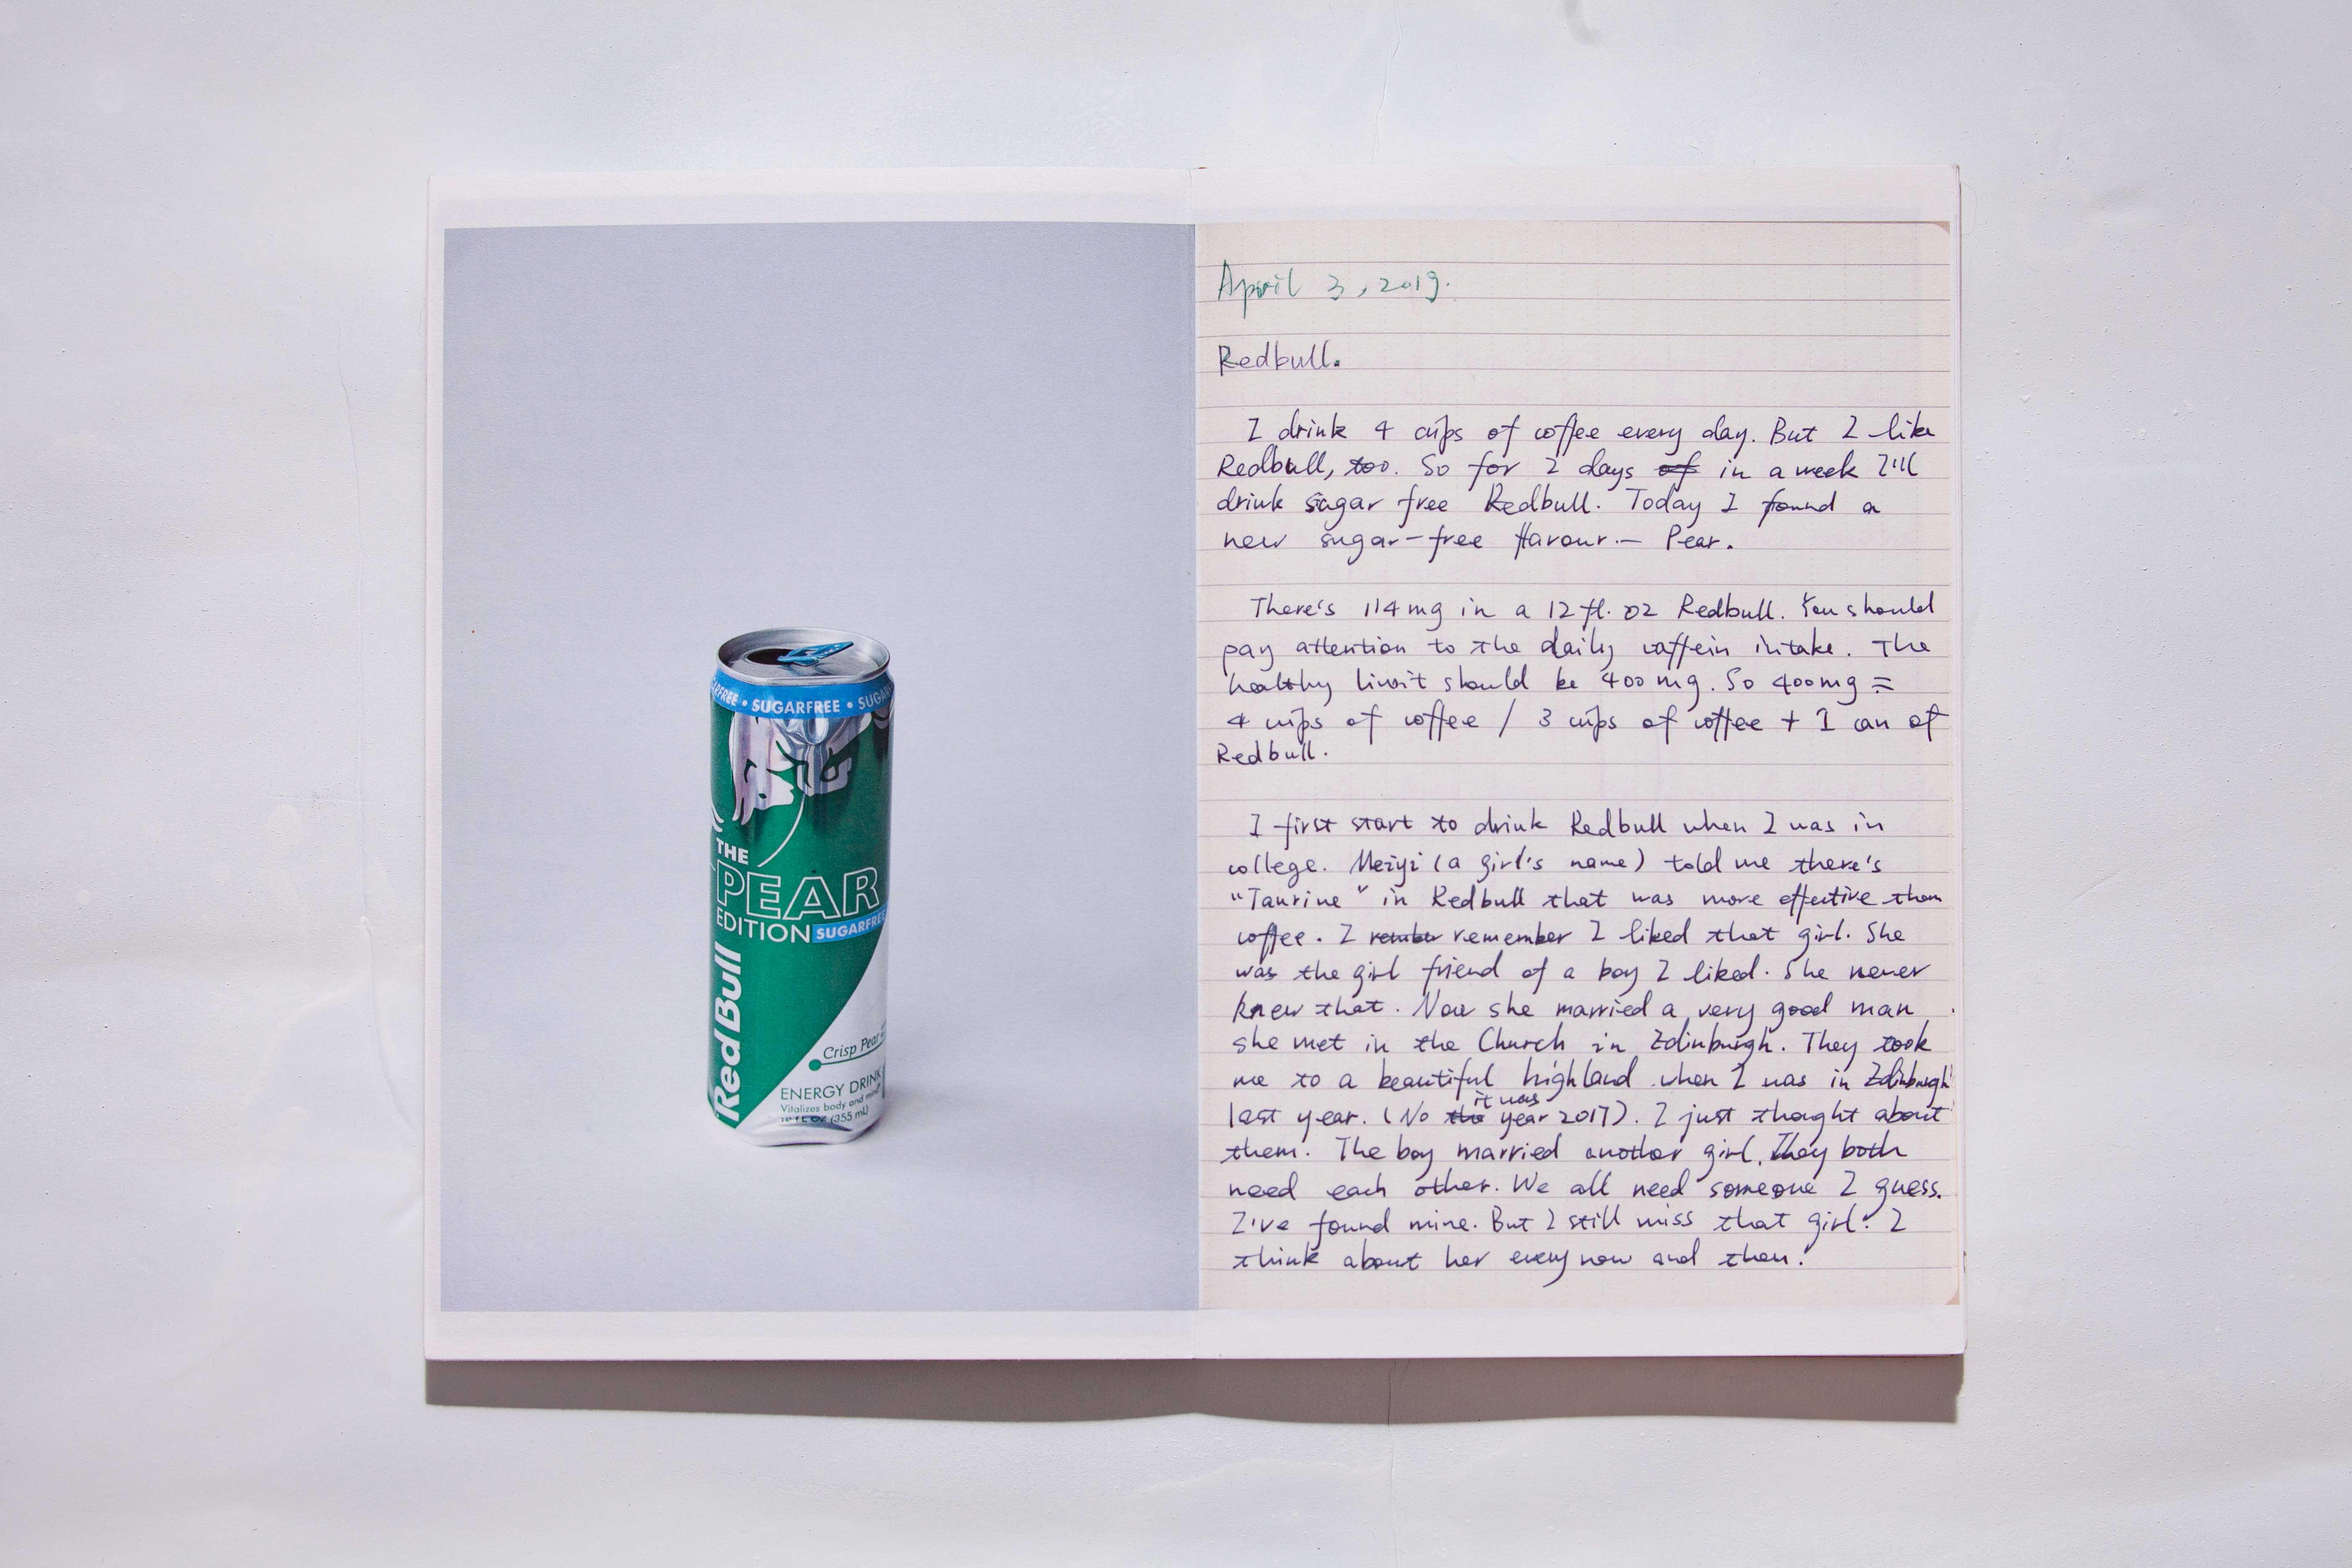 SUGARFREE • SUGAR
THE
PEAR
EDITION SUGARFREE
Red Bull
Crisp Pear
ENERGY DRINK
Vitalizes body and mind
12 FL OZ (355 mL)
April 3, 2019.
Redbull.
I drink 4 cups of coffee every day. But I like
Redbull, too. So for 2 days of in a week I'll
drink sugar free Redbull. Today I found a
new sugar-free flavour — Pear.
There's 114mg in a 12 fl. oz Redbull. You should
pay attention to the daily caffein intake. The
healthy limit should be 400 mg. So 400mg =
4 cups of coffee / 3 cups of coffee + 1 can of
Redbull.
I first start to drink Redbull when I was in
college. Meiyi (a girl's name) told me there's
"Taurine" in Redbull that was more effective than
coffee. I remember I liked that girl. She
was the girl friend of a boy I liked. She never
knew that. Now she married a very good man
she met in the Church in Edinburgh. They took
me to a beautiful highland when I was in Edinburgh
last year. (No the it was year 2017). I just thought about
them. The boy married another girl. They both
need each other. We all need someone I guess.
I've found mine. But I still miss that girl. I
think about her every now and then.